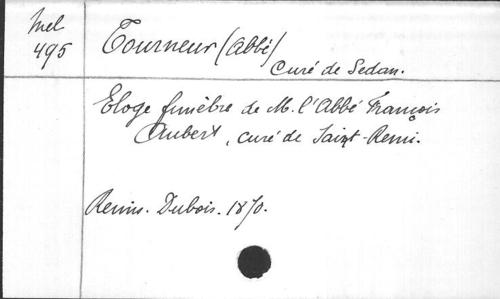 Mel
495
Tourneur (Abbé)
Curé de Sedan.
Eloge funèbre de M. l'Abbé François
Aubert, curé de Saint-Remi.
Reims. Dubois. 1870.